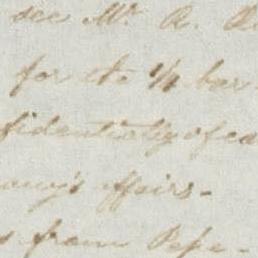 see Mr. A.
for the 1/4 bar
fidentially of ca
affairs-
from Pepe-